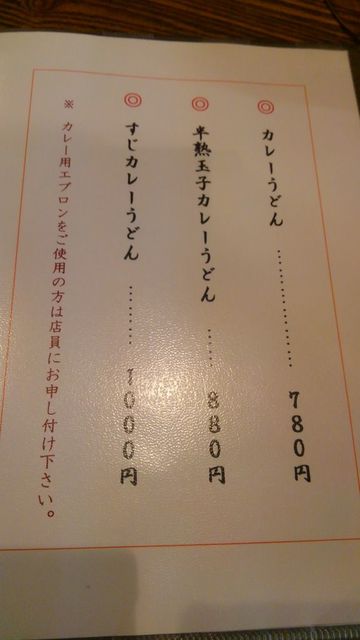 ◎ カレーうどん ………………… 780円
◎ 半熟玉子カレーうどん …… 880円
◎ すじカレーうどん ………… 1000円
※ カレー用エプロンをご使用の方は店員にお申し付け下さい。